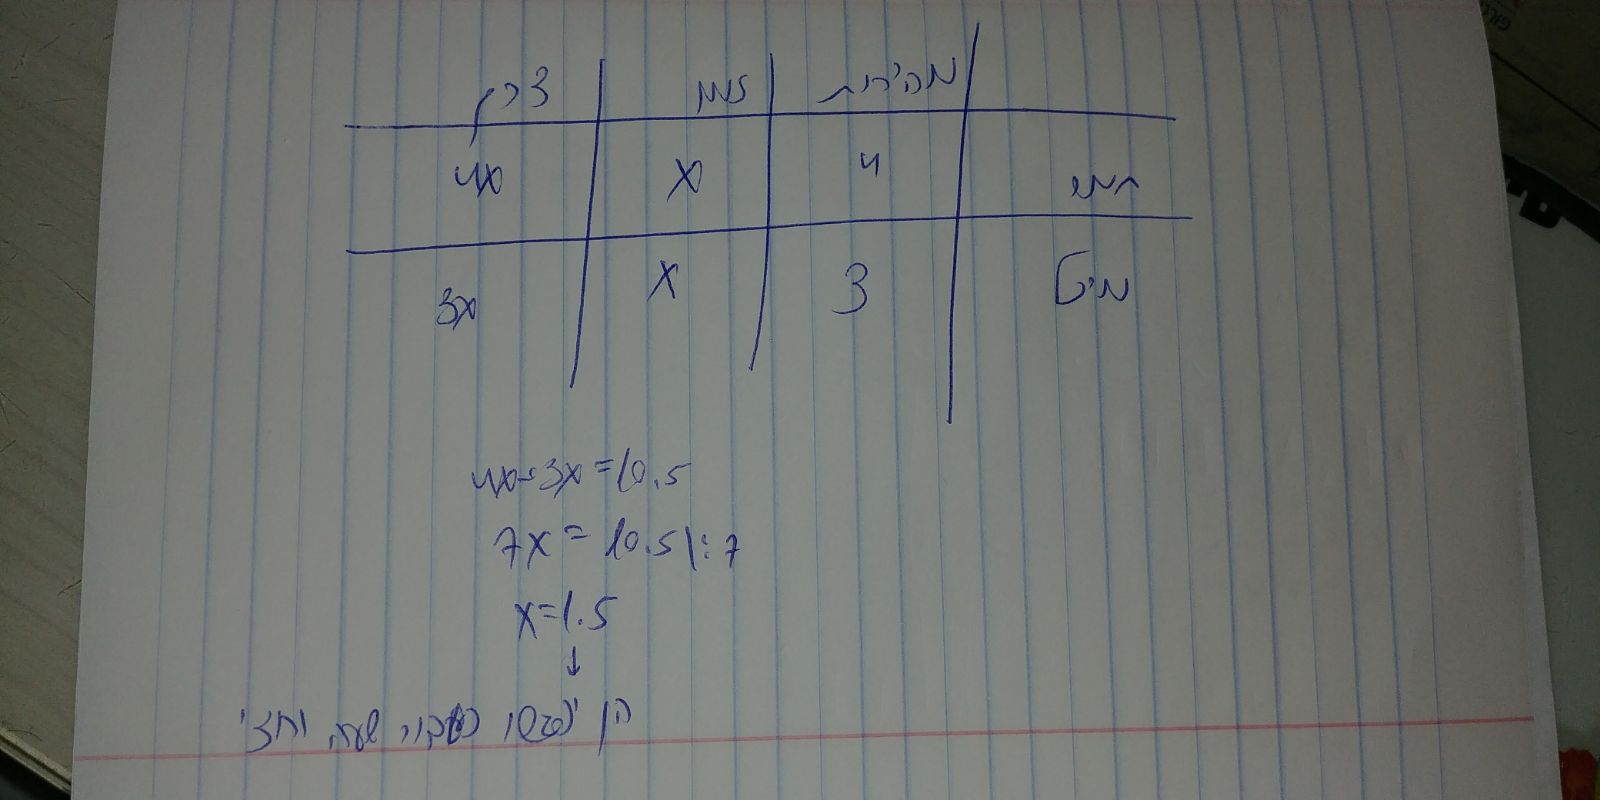 מהירות זמן דרך
תמי 4 X 4X
מיטל 3 X 3X
4X+3X=10.5
7X=10.5\:7
X=1.5
↓
הן יפגשו כעבור שעה וחצי